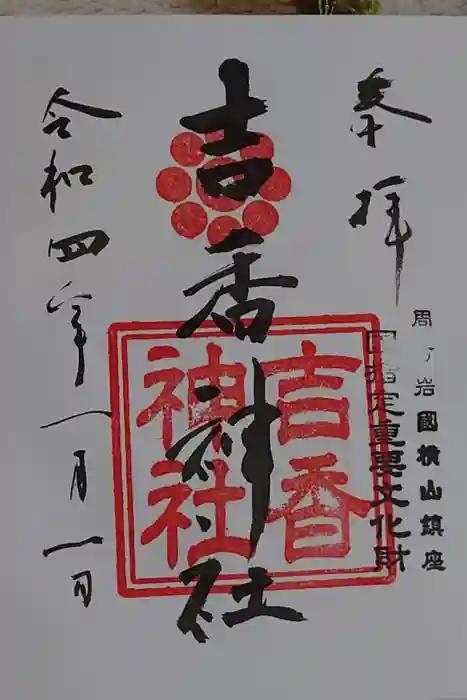 奉拝
周ヶ岩國横山鎮座
国指定重要文化財
吉香神社
吉香神社
令和四年一月一日